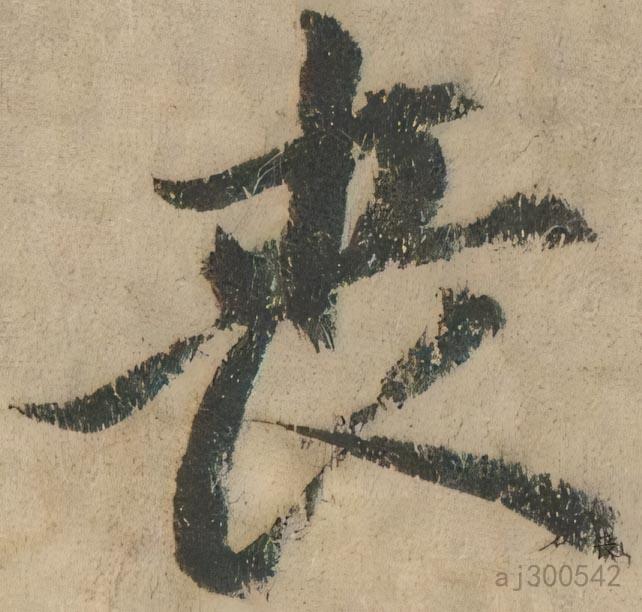 喪
aj300542